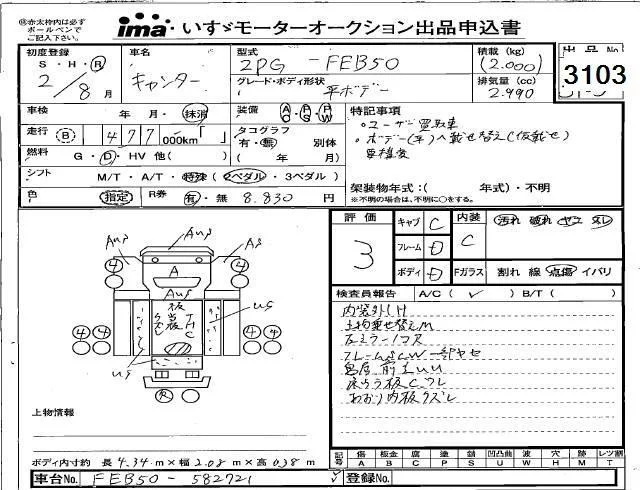 ㊟赤太枠内は必ず
ボールペンで
ご記入下さい。
ima いすゞモーターオークション出品申込書
初度登録 車名 型式 積載 (kg) 出品No.
S・H・R キャンター 2PG-FEB50 (2.000) 3103
2/8月 グレード・ボディ形状 平ボデー 排気量 (cc) 2.990
車検 年 月・抹消 装備 AC PS PW 特記事項
走行 B 477 000km「 」 タコグラフ 有・無 別体 ・ユーザー買取車
( 年 月) ・ボデー(平)へ載せ替え(仮載せ)
燃料 G・D・HV 他( )
シフト M/T・A/T・特殊(2ペダル・3ペダル) 架装物年式:( 年式)・不明
※不明の場合は、不明に○をする。
色 指定 R券 有・無 8.830 円
評価 3 キャブ C 内装 C 汚れ 破れ ヤニ スレ
フレーム D
ボディ D Fガラス 割れ 線 点傷 イバリ
検査員報告 A/C( ✓ ) B/T( )
内装外しH
上物乗せ替えM
左ミラー1コス
床ウラ板C.ワレ
あおり内板クズレ
AuP AuP AS
④ A ④
AuP
④④ US ④④
US
R
上物情報
ボディ内寸約 長 4.34m×幅 2.08m×高 0.38m
記号 傷 板金 腐 塗 錆 凹凸曲 波 穴 跡 レツ割
A B C P S U W H M T
車台No. FEB50-582721 登録No.